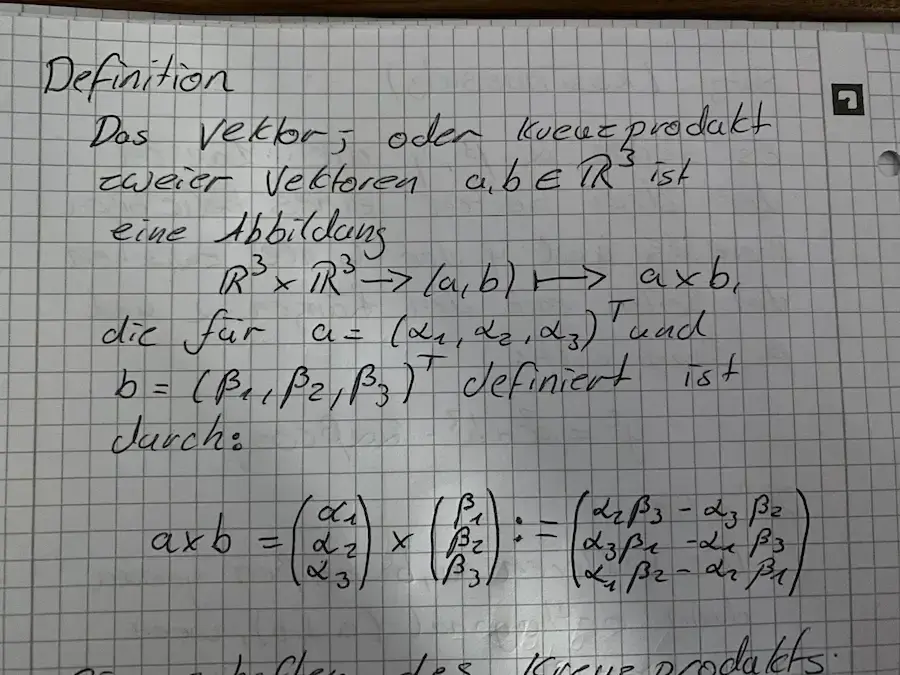 Definition
Das Vektor-, oder Kreuzprodukt
zweier Vektoren a,b ∈ ℝ³ ist
eine Abbildung
ℝ³ × ℝ³ → (a,b) ↦ a×b,
die für a = (α₁, α₂, α₃)ᵀ und
b = (β₁, β₂, β₃)ᵀ definiert ist
durch:
a×b = (α₁ α₂ α₃) × (β₁ β₂ β₃) := (α₂β₃ - α₃β₂ α₃β₁ - α₁β₃ α₁β₂ - α₂β₁)
des Kreuzprodukts: